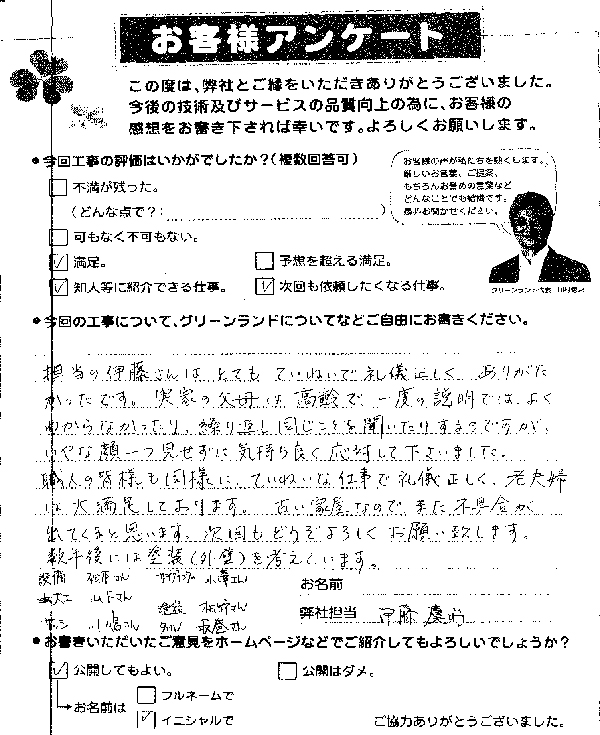 お客様アンケート
この度は、弊社とご縁をいただきありがとうございました。
今後の技術及びサービスの品質向上の為に、お客様の
感想をお書き下されば幸いです。よろしくお願いします。
今回工事の評価はいかがでしたか？(複数回答可)
不満が残った。
(どんな点で？: )
可もなく不可もない。
満足。
予想を超える満足。
知人等に紹介できる仕事。
次回も依頼したくなる仕事。
お客様の声が私たちを熱くします。
厳しいお言葉、ご提案、
もちろんお誉めの言葉など
どんなことでも結構です。
是非お聞かせください。
グリーンランド代表
今回の工事について、グリーンランドについてなどご自由にお書きください。
担当の伊藤さんは とても ていねいで 礼儀正しく、ありがた
かったです。実家の父母は 高齢で、一度の説明では、よく
わからなかったり、繰り返し同じことを聞いたりするのですが、
いやな顔一つ見せずに気持ち良く応対して下さいました。
職人の皆様も同様に、ていねいな仕事で礼儀正しく、老夫婦
は大満足しております。古い家屋なので、また不具合が
出てくると思います。次回もどうぞよろしくお願い致します。
数年後には塗装(外壁)を考えています。
設備
さん
サイディング
小澤さん
大工
山下さん
塗装
松野さん
小嶋さん
タイル
さん
お名前
弊社担当 伊藤
お書きいただいたご意見をホームページなどでご紹介してもよろしいでしょうか？
公開してもよい。
公開はダメ。
お名前は
フルネームで
イニシャルで
ご協力ありがとうございました。